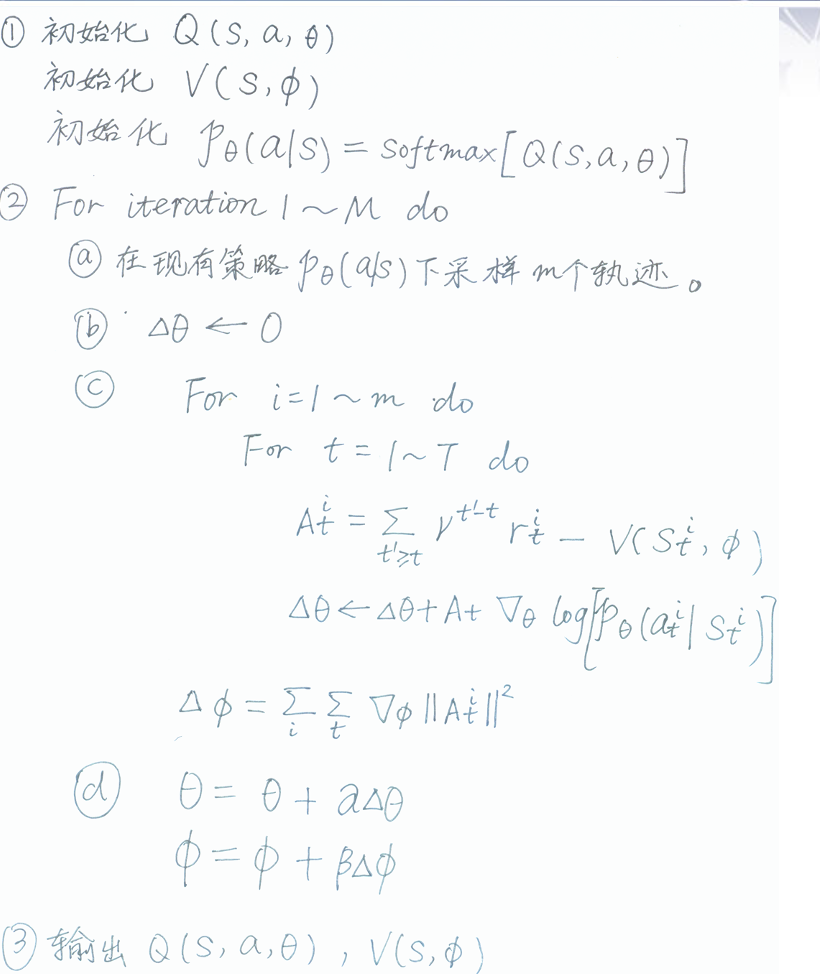 ① 初始化 Q(s, a, θ)
初始化 V(s, ϕ)
初始化 p_θ(a|s) = softmax[Q(s, a, θ)]
② For iteration 1 ~ M do
ⓐ 在现有策略 p_θ(a|s) 下采样 m个轨迹。
ⓑ Δθ ← 0
ⓒ For i = 1 ~ m do
For t = 1 ~ T do
A_t^i = ∑_{t'≥t} γ^{t'-t} r_t^i − V(S_t^i, ϕ)
Δθ ← Δθ + A_t ∇_θ log[p_θ(a_t^i | S_t^i)]
Δϕ = ∑_i ∑_t ∇_ϕ ||A_t^i||^2
ⓓ θ = θ + aΔθ
ϕ = ϕ + βΔϕ
③ 输出 Q(s, a, θ), V(s, ϕ)